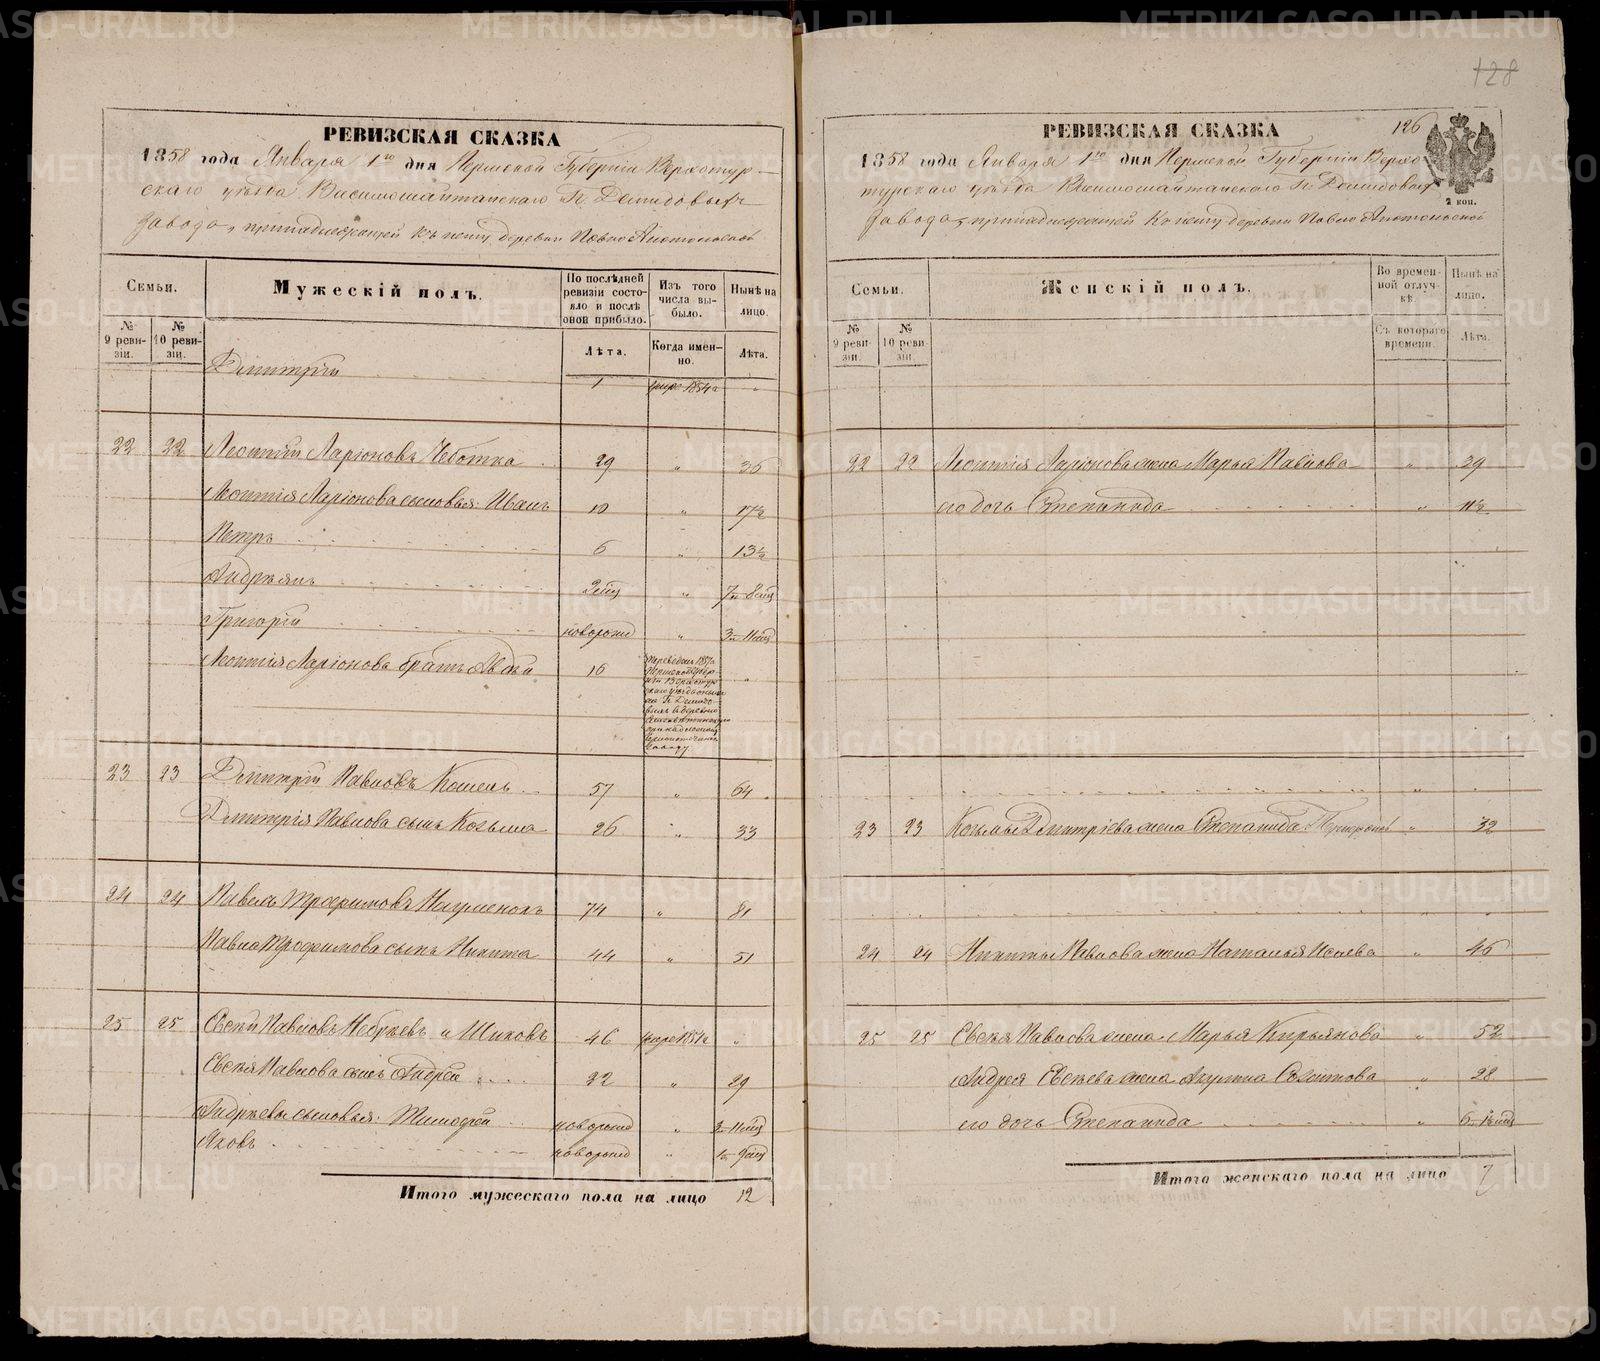 128
РЕВИЗСКАЯ СКАЗКА
1858 года Января 1го дня Пермской Губерніи Верхотур-
скаго уѣзда Висимошайтанскаго Гг. Демидовыхъ
Завода, принадлежащей къ нему деревни Павло Анатольской
Семьи.
Мужескій полъ.
По послѣдней ревизіи состояло и послѣ оной прибыло.
Изъ того числа выбыло.
Нынѣ на лицо.
№ 9 ревизіи.
№ 10 ревизіи.
Лѣта.
Когда именно.
Лѣта.
Дмитрій 1 умре 1854 г „
22 22 Леонтій Ларіоновъ Чеботка 29 „ 36
Леонтія Ларіонова сыновья: Иванъ 10 „ 17½
Петръ 6 „ 13½
Андреянъ 2 мц „ 7 л 8 мц
Григорій новорожд „ 3 л 11 мц
Леонтія Ларіонова братъ 16 „
23 23 Дмитрій Павловъ Кошель 57 „ 64
Дмитрія Павлова сынъ Козьма 26 „ 33
24 24 Павелъ Трофимовъ Науменокъ 74 „ 81
Павла Трофимова сынъ Никита 44 „ 51
25 25 Евсѣй Павловъ и Шиховъ 46 умре 1854 г „
Евсѣя Павлова сынъ Андрей 22 „ 29
Андрѣевы сыновья: Тимофей новорожд „ 3 л 11 мц
Яковъ новорожд „ 1 л 9 мц
Итого мужескаго пола на лицо 12
РЕВИЗСКАЯ СКАЗКА 126
2 коп.
1858 года Января 1го дня Пермской Губерніи Верхо-
турскаго уѣзда Висимошайтанскаго Гг. Демидовыхъ
Завода, принадлежащей къ нему деревни Павло Анатольской
Семьи.
Женскій полъ.
Во временной отлучкѣ.
Нынѣ на лицо.
№ 9 ревизіи.
№ 10 ревизіи.
Съ котораго времени.
Лѣта.
22 22 Леонтія Ларіонова жена Марья Павлова „ 39
его дочь Степанида „ 11½
23 23 Козьмы Дмитріева жена Степанида „ 32
24 24 Никиты Павлова жена Наталья Исаева „ 46
25 25 Евсѣя Павлова жена Марья Кирьянова „ 52
Андрея Евсѣева жена Акулина „ 28
его дочь Степанида „
Итого женскаго пола на лицо 7
METRIKI.GASO-URAL.RU